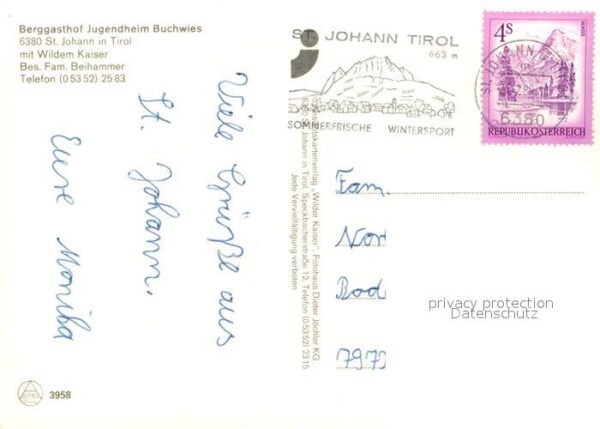 Berggasthof Jugendheim Buchwies
6380 St. Johann in Tirol
mit Wildem Kaiser
Bes. Fam. Beihammer
Telefon (0 53 52) 25 83
ST. JOHANN TIROL
663 m
SOMMERFRISCHE WINTERSPORT
4S
ST. JOHANN
6380
REPUBLIK ÖSTERREICH
Viele Grüße aus
St. Johann.
Eure Monika
"Wilder Kaiser", Fotohaus Dieter Jöchler KG
St. Johann in Tirol, Speckbacherstraße 12, Telefon (0 53 52) 23 15
Jede Vervielfältigung verboten
Fam.
Nor
Bad
7972
privacy protection
Datenschutz
3958